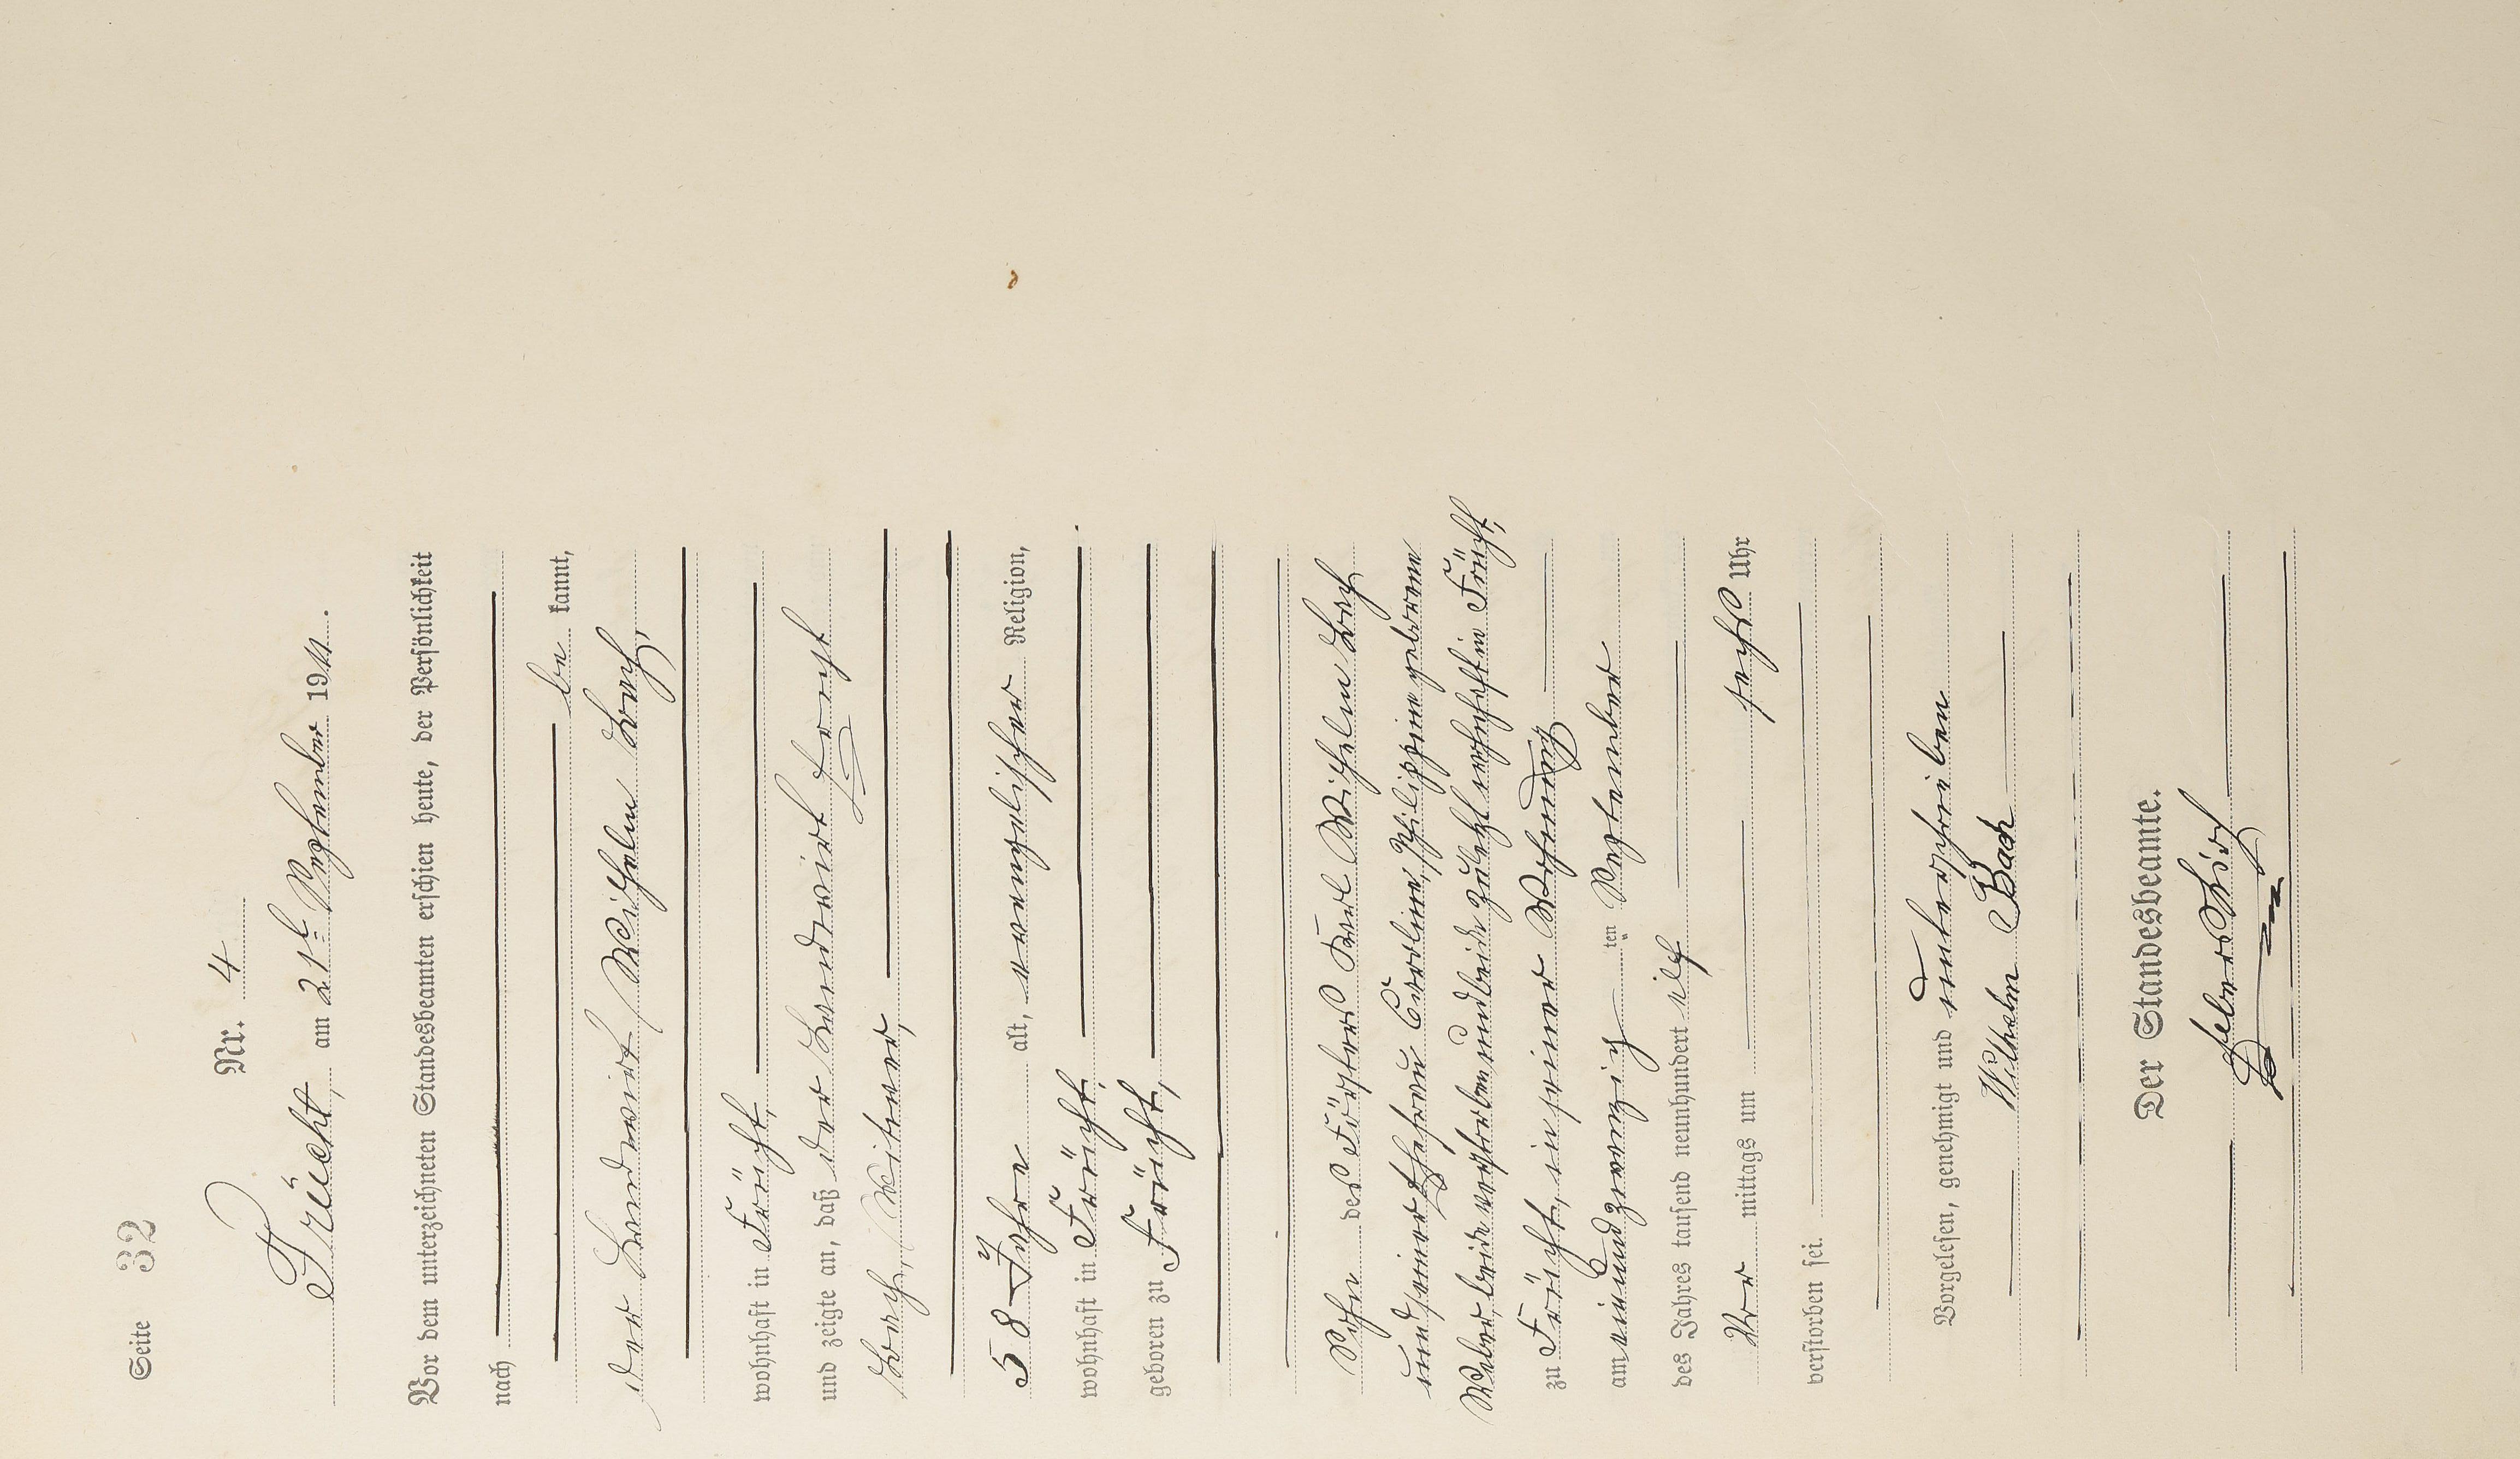 Seite 32
Nr. 4
Frücht, am 21t September 1911.
Vor dem unterzeichneten Standesbeamten erschien heute, der Persönlichkeit
nach
be kannt,
der Landwirt Wilhelm Bach,
wohnhaft in Frücht,
und zeigte an, daß der Landwirt
Bach, Witwer,
58 Jahre alt, evangelischer Religion,
wohnhaft in Frücht,
geboren zu Frücht,
Sohn des Försters Karl Wilhelm Bach
und seiner Ehefrau Caroline, Philippine geborene
Weber, beide verstorben und beide zuletzt wohnhaft in Frücht,
zu Frücht, in seiner Wohnung
am einundzwanzig ten September
des Jahres tausend neunhundert elf
Vor mittags um sechs Uhr
verstorben sei.
Vorgelesen, genehmigt und unterschrieben
Wilhelm Bach
Der Standesbeamte.